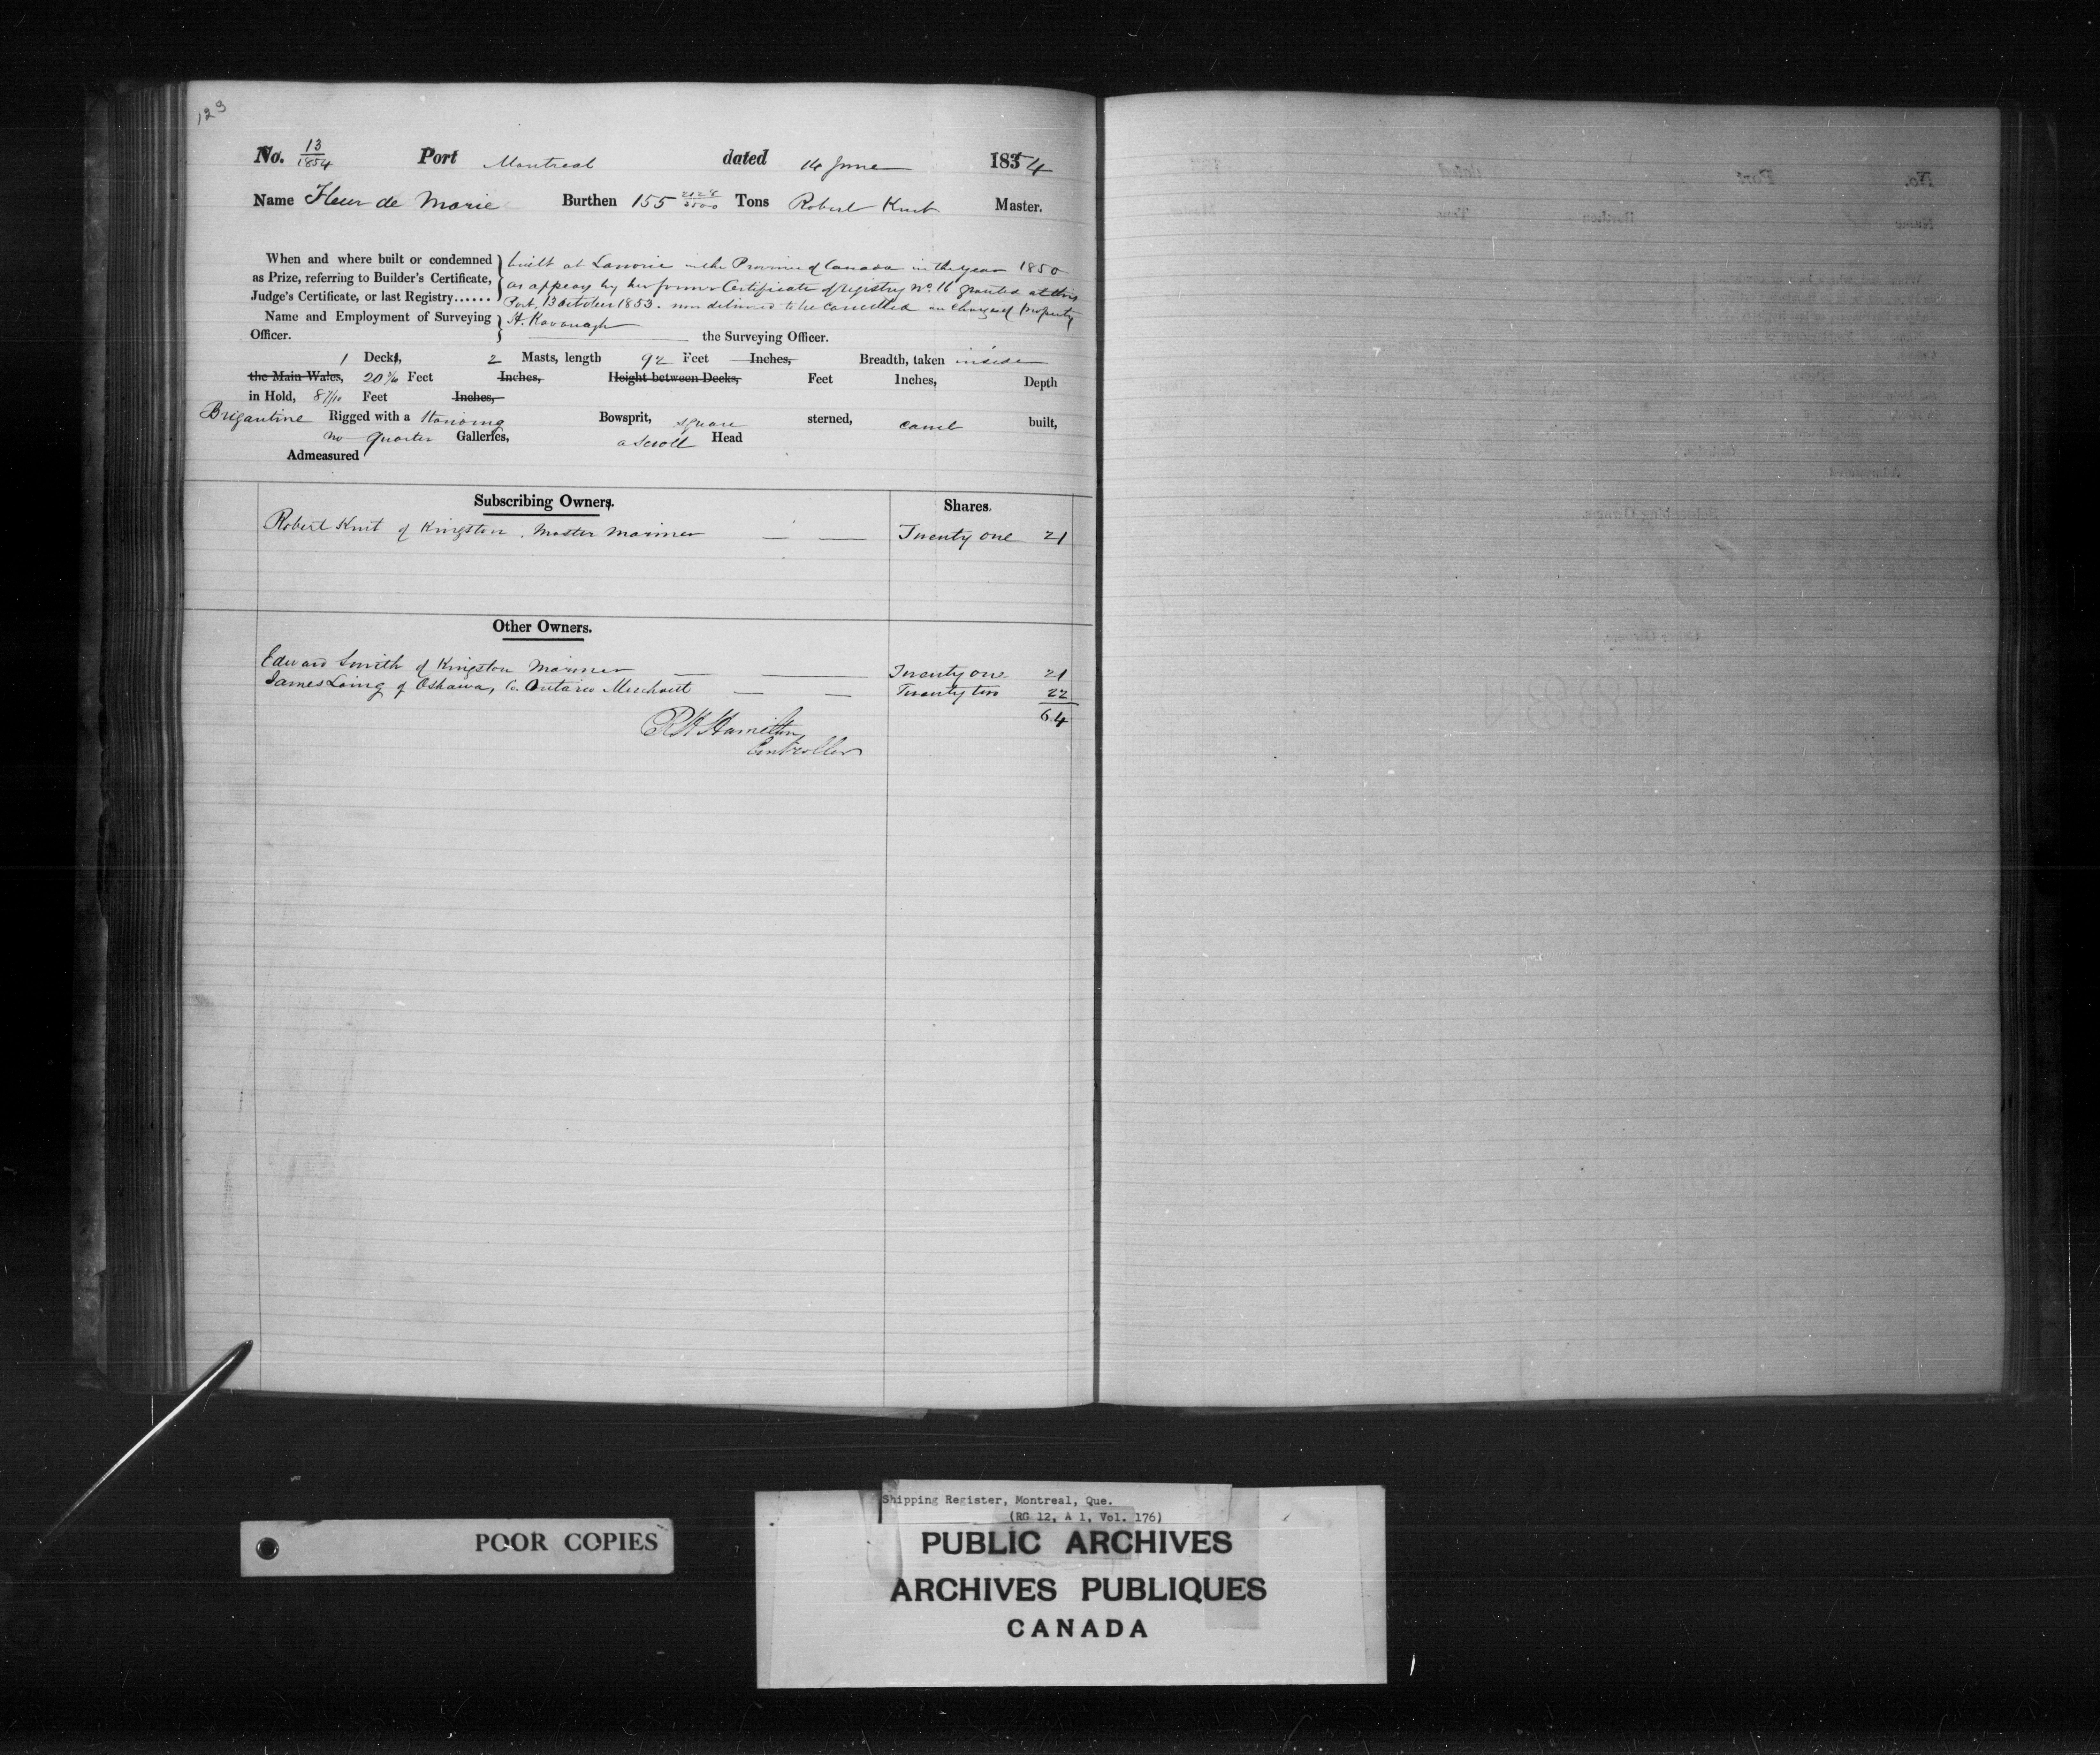 123
No. 13/1854 Port Montreal dated 14 June 1854
Name Fleur de Marie Burthen 155 2028/3500 Tons Robert Kent Master.
When and where built or condemned as Prize, referring to Builder's Certificate, Judge's Certificate, or last Registry......
built at Lanoraie in the Province of Canada in the year 1850
as appears by her former Certificate of registry No. 16 granted at this
Port, 13 October 1853. now delivered to be cancelled on change of property
Name and Employment of Surveying Officer. H. Kavanagh the Surveying Officer.
1 Deck, 2 Masts, length 92 Feet Inches, Breadth, taken inside
the Main Wales, 20 Feet Inches, Height between Decks, Feet Inches, Depth
in Hold, 8 7/10 Feet Inches,
Brigantine Rigged with a standing Bowsprit, square sterned, carvel built,
no quarter Galleries, a scroll Head
Admeasured
Subscribing Owners. Shares.
Robert Kent of Kingston, Master Mariner Twenty one 21
Other Owners.
Edward Smith of Kingston Mariner Twenty one 21
James Laing of Oshawa, Co. Ontario Merchant Twenty two 22
64
R H Hamilton
Controller
POOR COPIES
Shipping Register, Montreal, Que.
(RG 12, A 1, Vol. 176)
PUBLIC ARCHIVES
ARCHIVES PUBLIQUES
CANADA